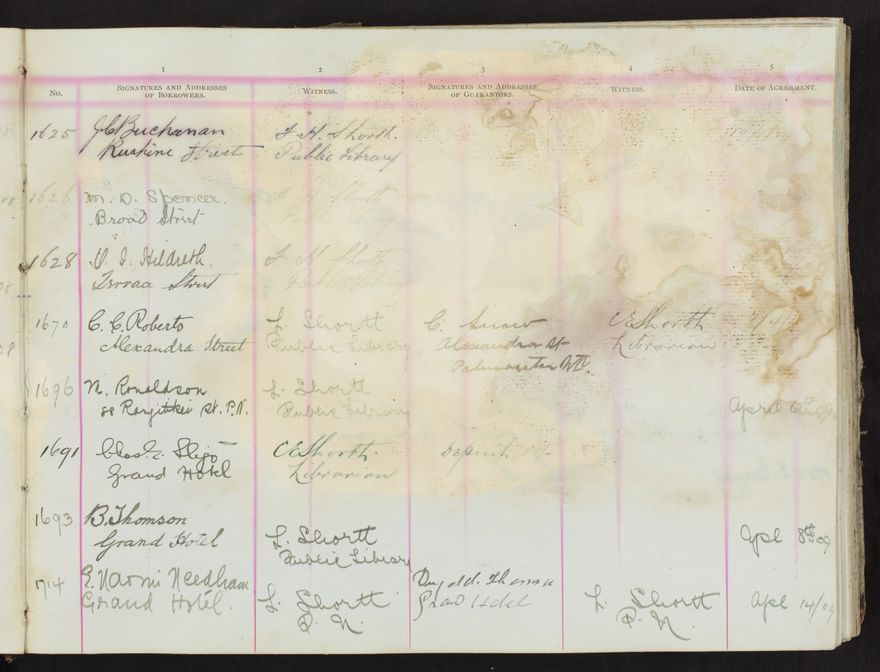 1 2 3 4 5
No. SIGNATURES AND ADDRESSES OF BORROWERS. WITNESS. SIGNATURES AND ADDRESSES OF GUARANTORS. WITNESS. DATE OF AGREEMENT.
1625 J C Buchanan
Ruahine Street Public Library
1626 M. D. Spencer.
Broad Street
1628 Hildreth.
Street Public Library
1670 C. C. Roberts L. Shortt C. Snow
Alexandra Street Public Library Alexandra St Librarian
Palmerston Nth.
1696 N. Ronaldson L. Shortt
88 Rangitikei St. P.N. Public Library April 6th
1691 Sligo Deposit
Grand Hotel Librarian
1693 B. Thomson
Grand Hotel L. Shortt Apl 8th 09
Public Library
1714 E. Naomi Needham Thomson
Grand Hotel. L. Shortt Grand Hotel L. Shortt Apl 14/09
P. N. P. N.